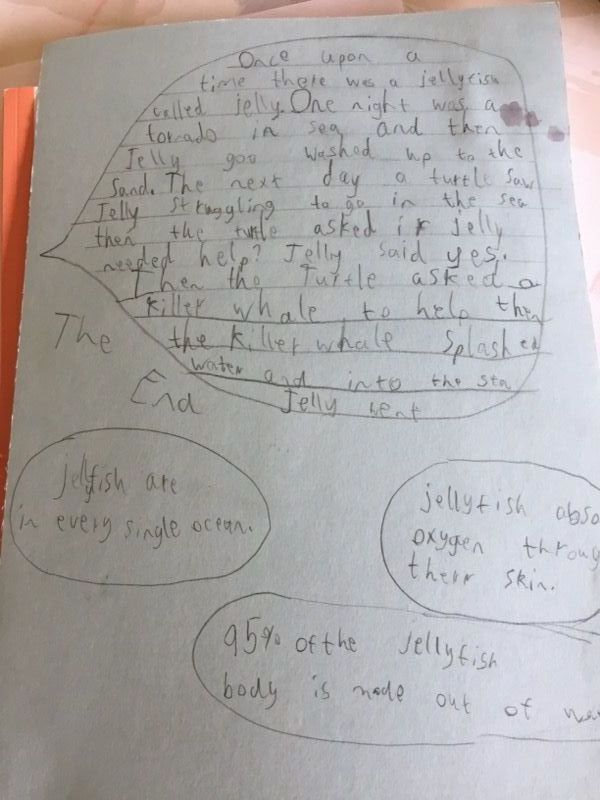 Once upon a
time there was a jellyfish
called jelly. One night was a
tornado in sea and then
Jelly got washed up to the
sand. The next day a turtle saw
Jelly struggling to go in the sea
then the turtle asked if jelly
needed help? Jelly said yes.
Then the Turtle asked a
killer whale to help then
the killer whale splashed
water and into the sea
Jelly went
The
End
jellfish are
in every single ocean.
jellyfish abso
oxygen throug
there skin.
95% of the jellyfish
body is made out of wa